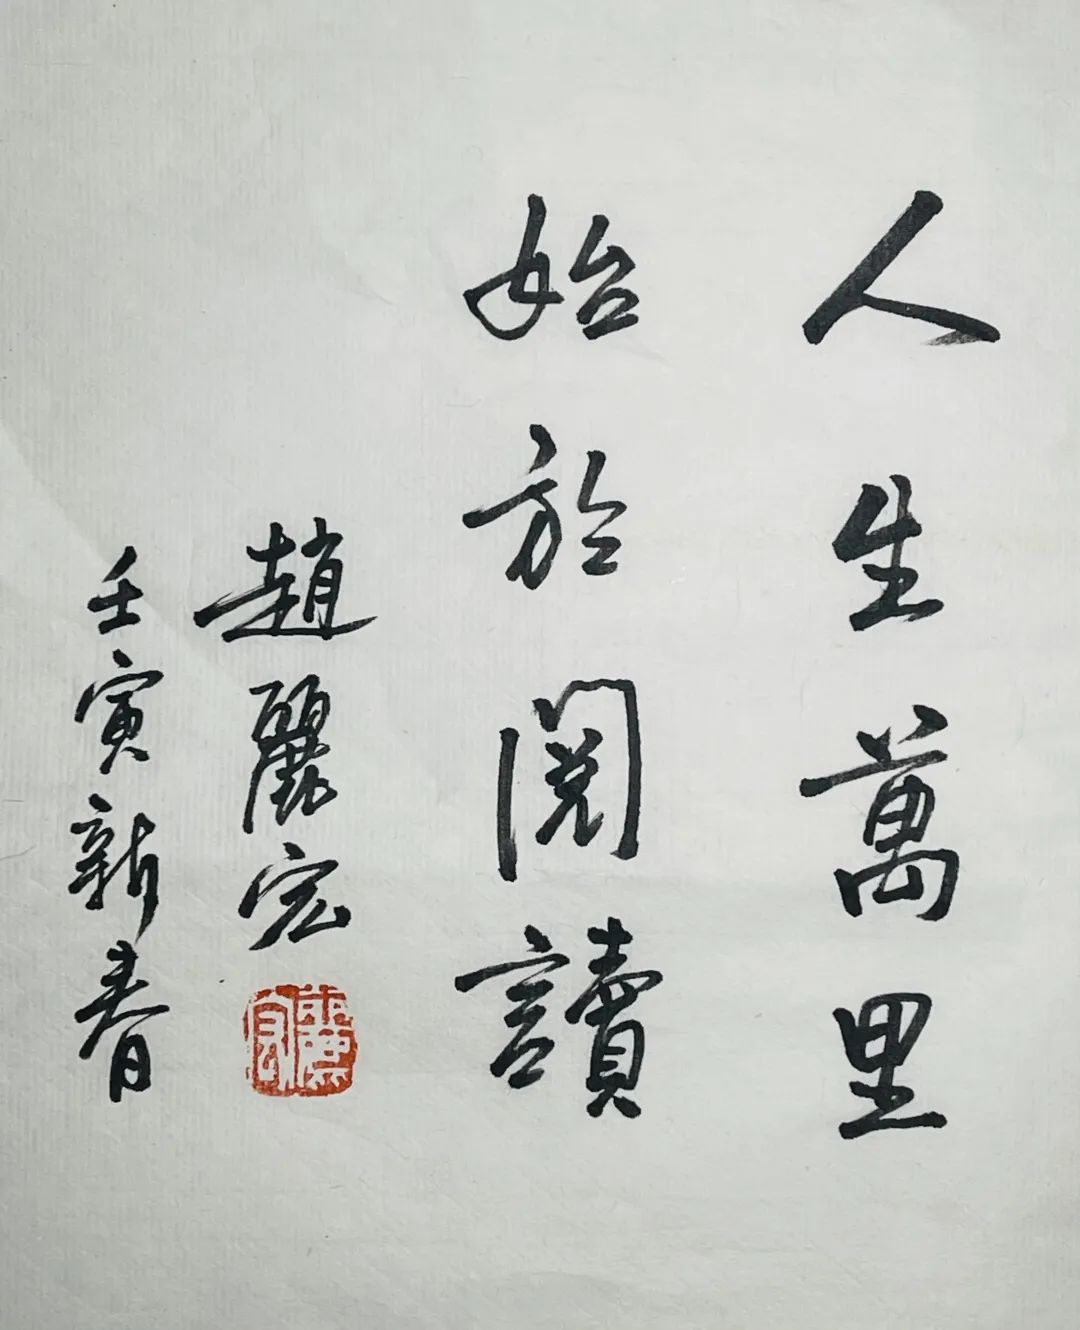 人生萬里
始於閱讀
趙麗宏
壬寅新春